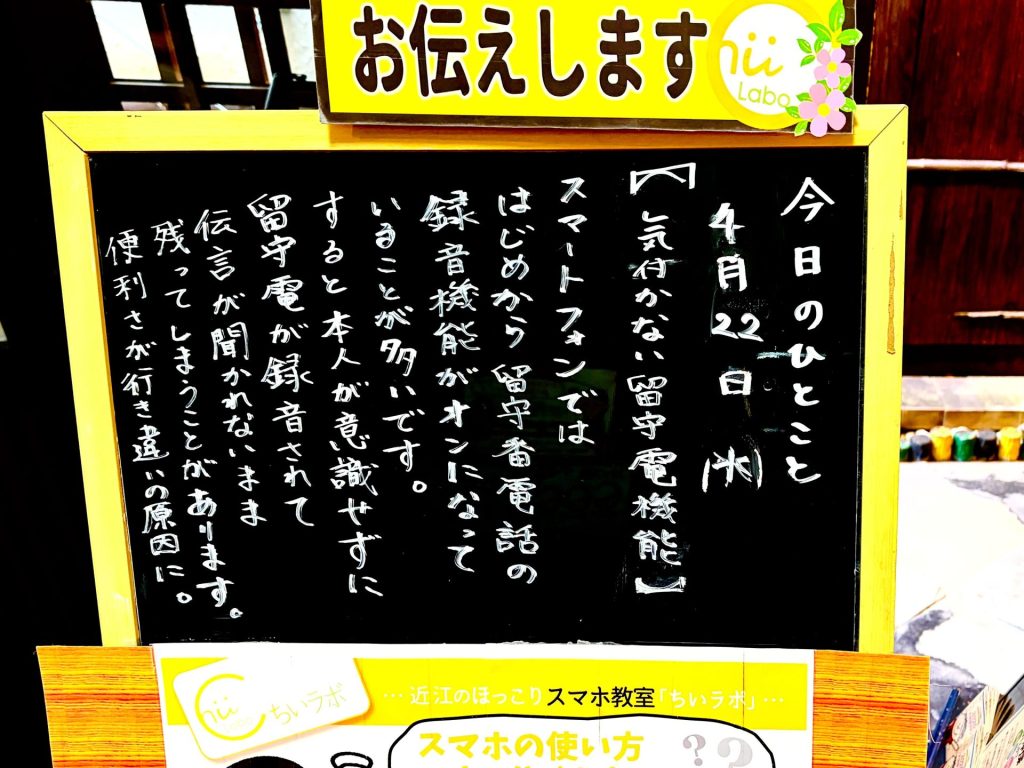 お伝えします
nii
Labo
今日のひとこと
4月22日(水)
【気付かない留守電機能】
スマートフォンでは
はじめから留守番電話の
録音機能がオンになって
いることが多いです。
すると本人が意識せずに
留守電が録音されて
伝言が聞かれないまま
残ってしまうことがあります。
便利さが行き違いの原因に。
ちいラボ
…近江のほっこりスマホ教室「ちいラボ」…
スマホの使い方
??